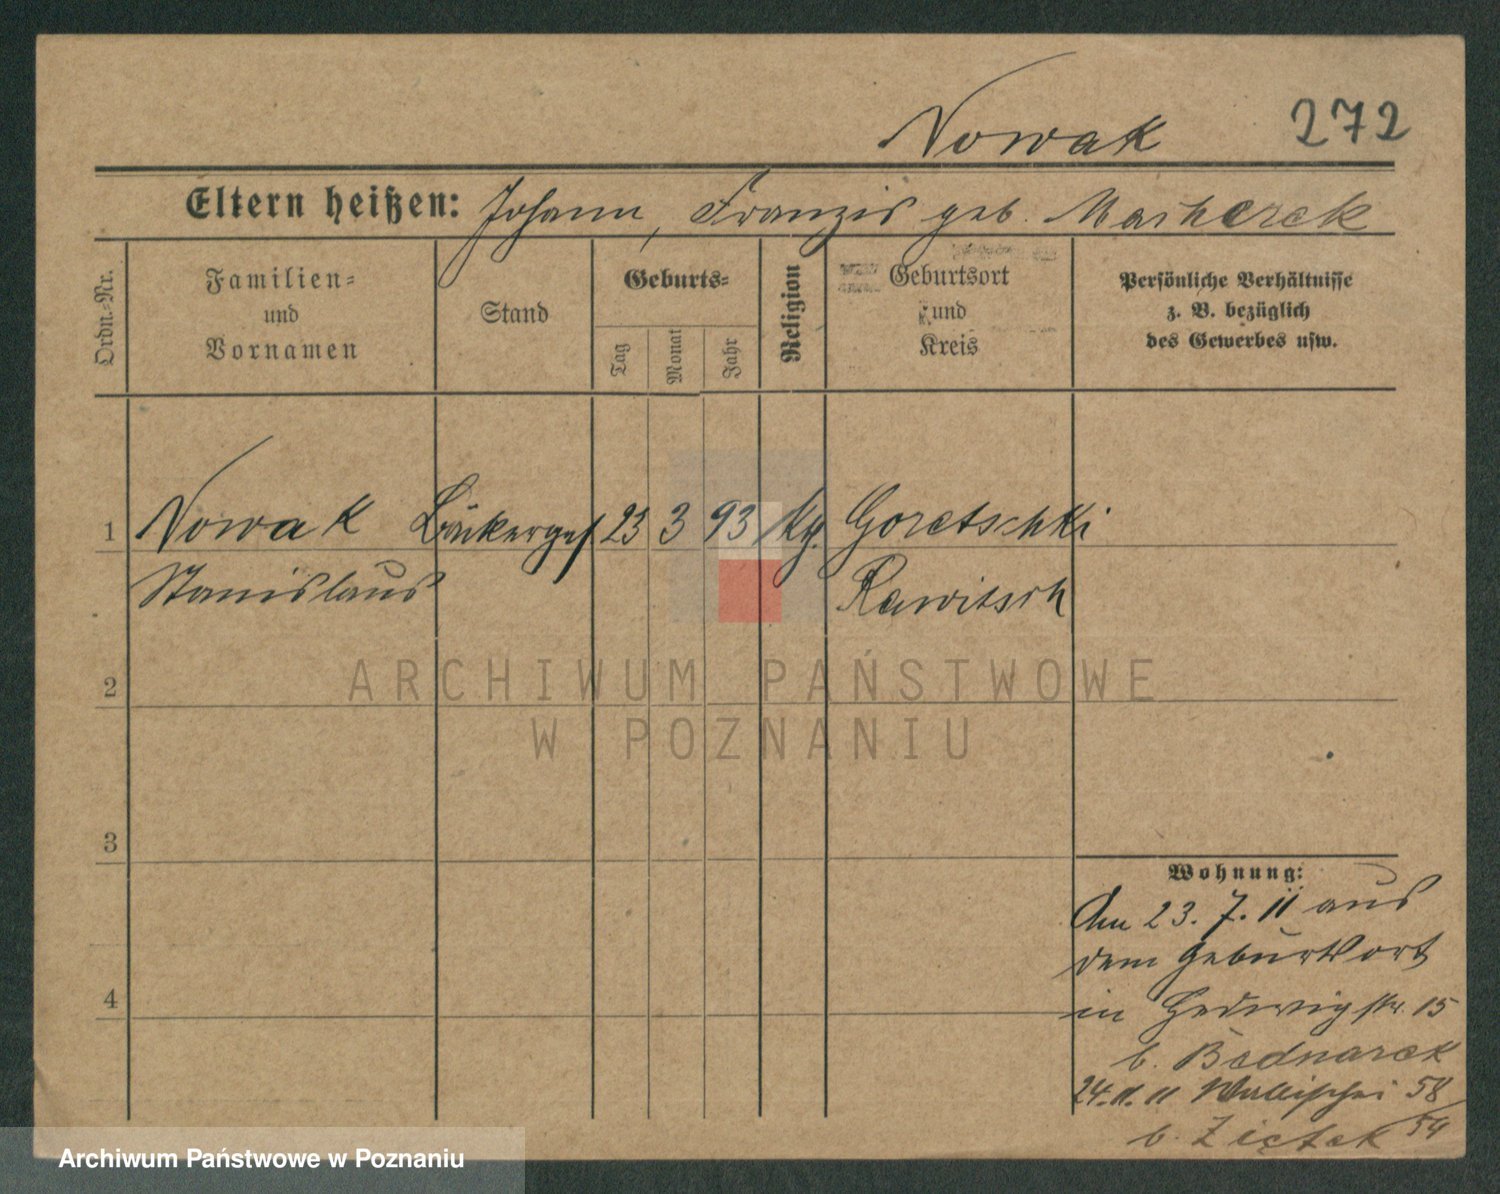 Nowak
272
Eltern heißen: Johann, Franzis geb. Macherek
Ordn.-Nr.
Familien- und Vornamen
Stand
Geburts-
Tag
Monat
Jahr
Religion
Geburtsort und Kreis
Persönliche Verhältnisse
z. B. bezüglich
des Gewerbes usw.
1 Nowak Bäckerges 23 3 93 kg. Goretschki
Stanislaus Rawitsch
2
3
4
Wohnung:
Am 23. 7. 11 aus
dem Geburtsort
in Hedwigstr. 15
b. Bednarek
24. 11. 11 Wallischei 58/59
b. Ziętek
ARCHIWUM PAŃSTWOWE
W POZNANIU
Archiwum Państwowe w Poznaniu